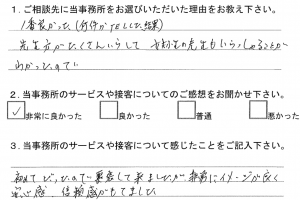 1. ご相談先に当事務所をお選びいただいた理由をお教え下さい。
1番良かった(何件かTELした結果)
先生方がたくさんいらして 女性の先生もいらっしゃることが
わかったので
2. 当事務所のサービスや接客についてのご感想をお聞かせ下さい。
✓ 非常に良かった 良かった 普通 悪かった
3. 当事務所のサービスや接客について感じたことをご記入下さい。
初めてだったので緊張して来ましたが 非常にイメージが良く
安心感、信頼感がもてました